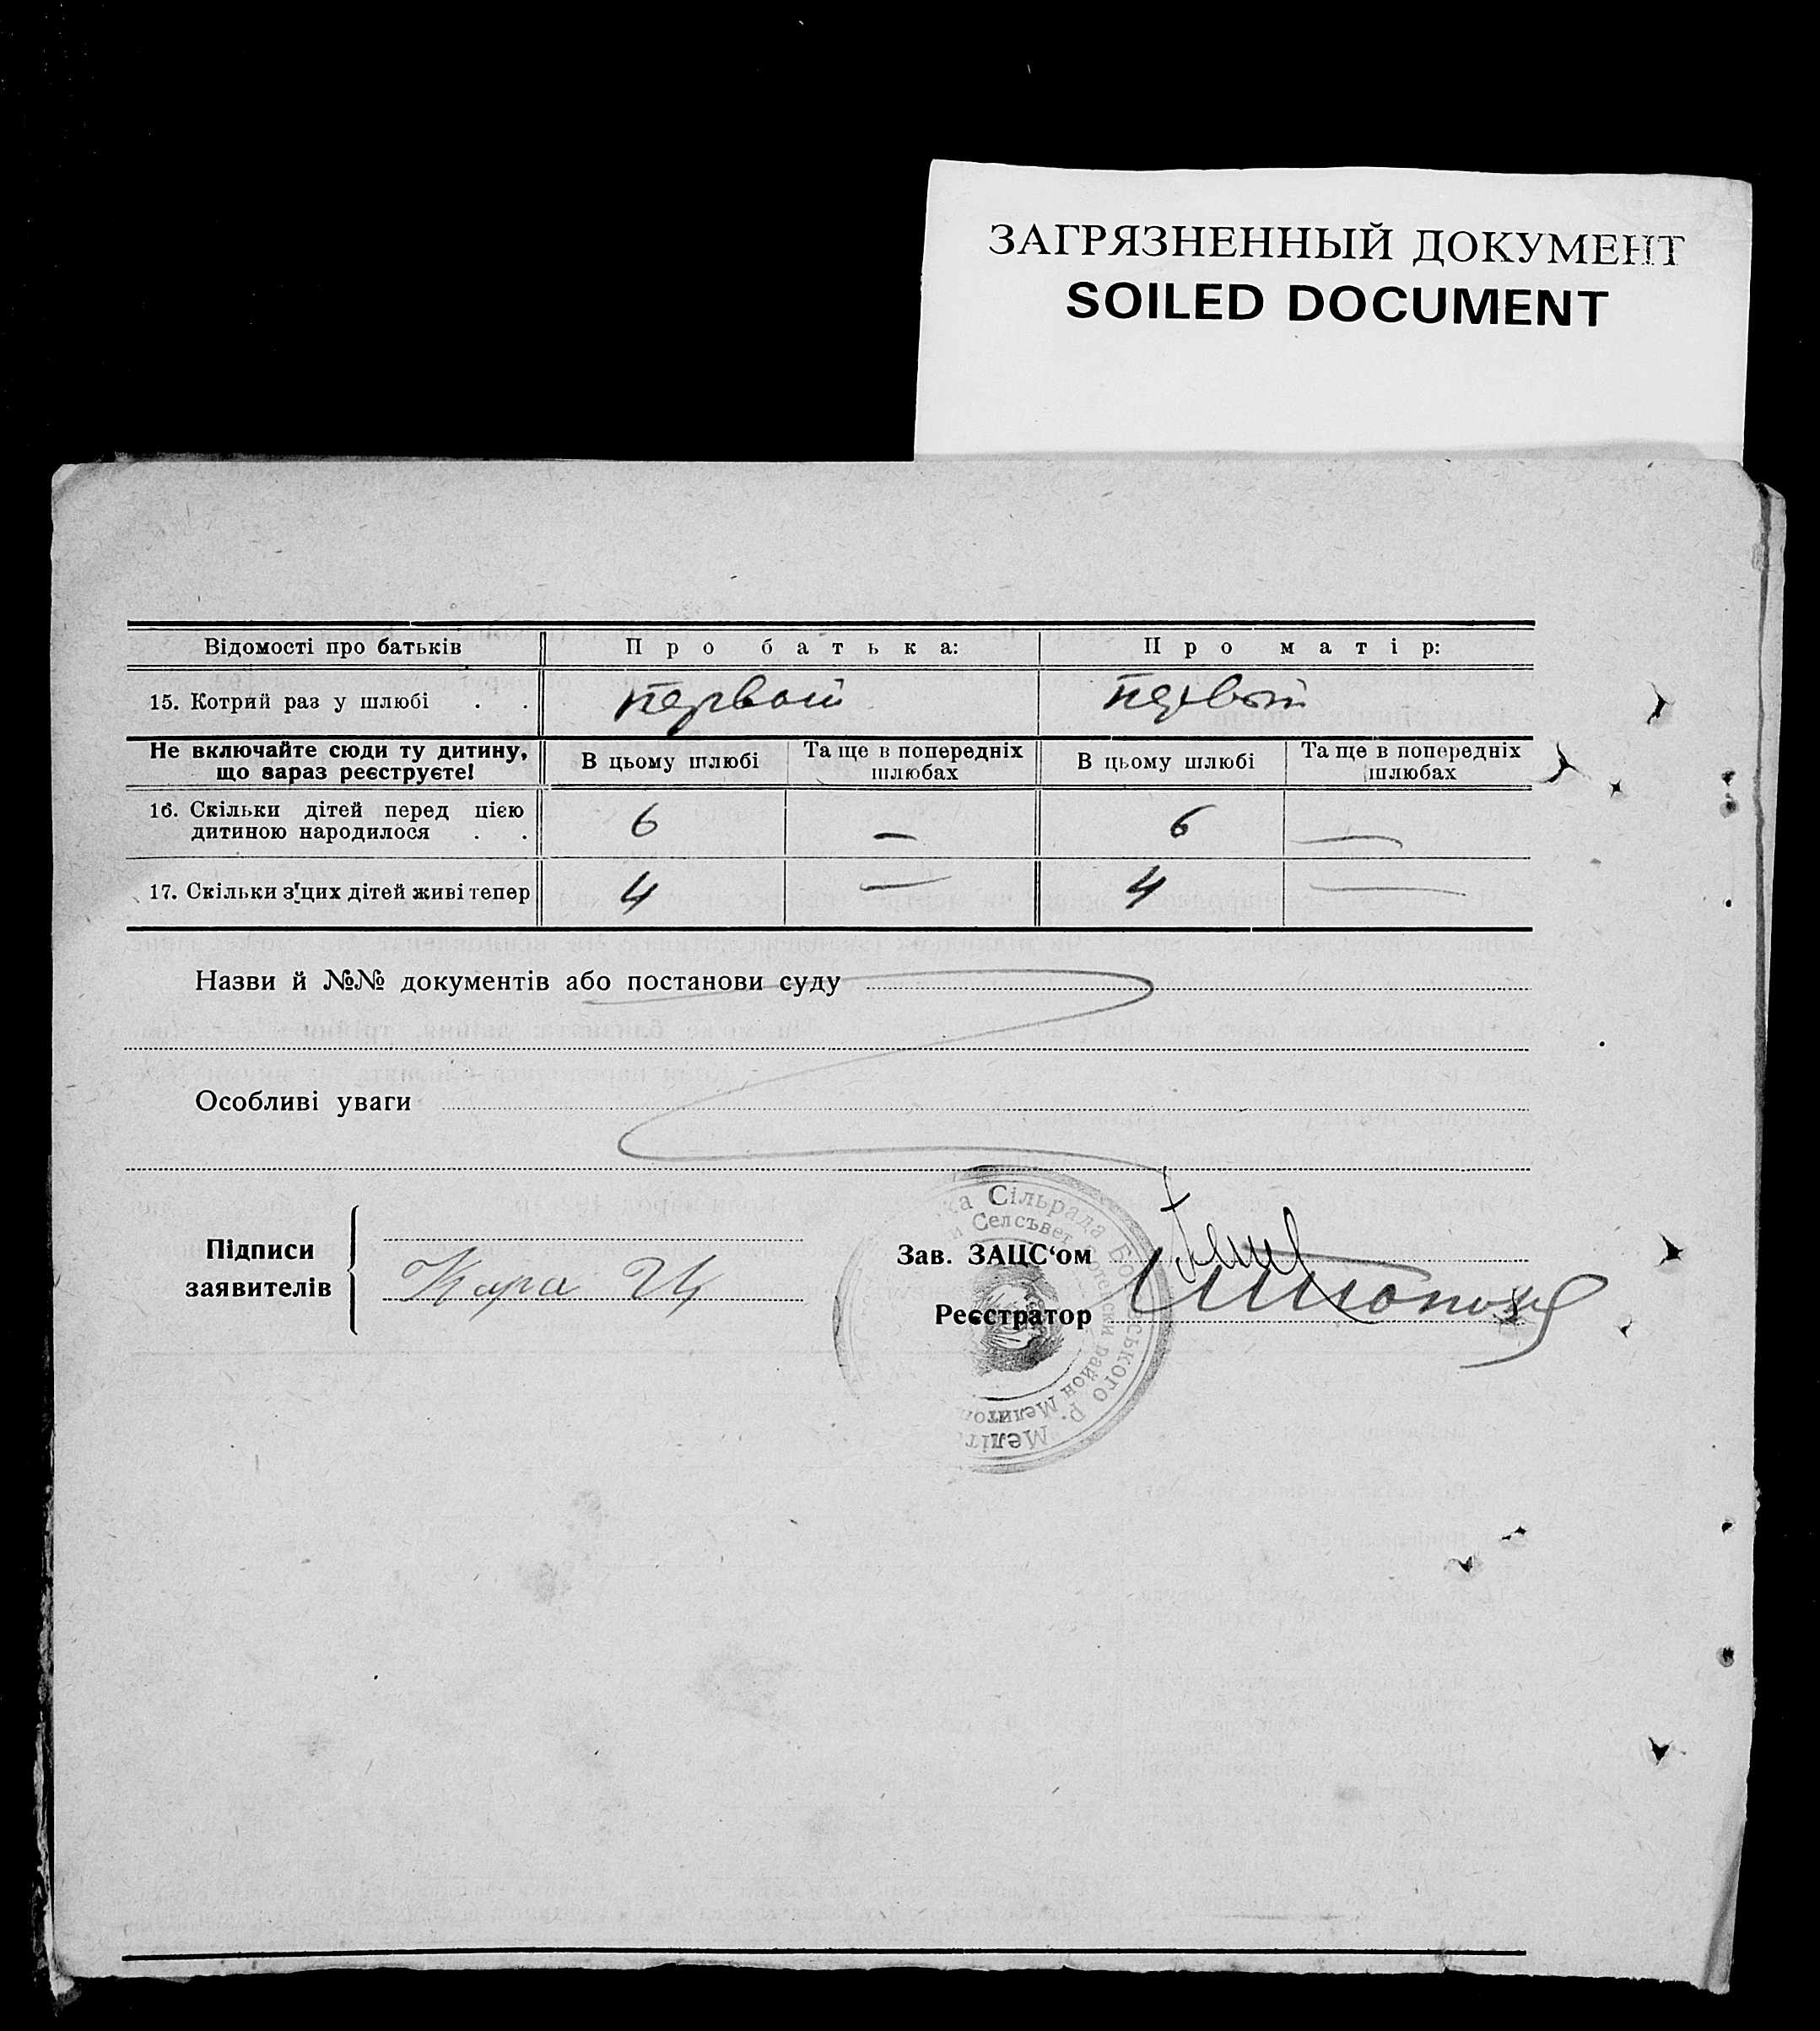 ЗАГРЯЗНЕННЫЙ ДОКУМЕНТ
SOILED DOCUMENT
Відомості про батьків Про батька: Про матір:
15. Котрий раз у шлюбі . . первый первый
Не включайте сюди ту дитину, що зараз реєструєте! В цьому шлюбі Та ще в попередніх шлюбах В цьому шлюбі Та ще в попередніх шлюбах
16. Скільки дітей перед цією дитиною народилося . . 6 — 6 —
17. Скільки з'цих дітей живі тепер 4 — 4 —
Назви й №№ документів або постанови суду
Особливі уваги
Підписи заявителів
Кара
Зав. ЗАЦС‘ом
Реєстратор
Сільрада Бо
ського р. Меліт
Селсъвет
ски район Мелитоп